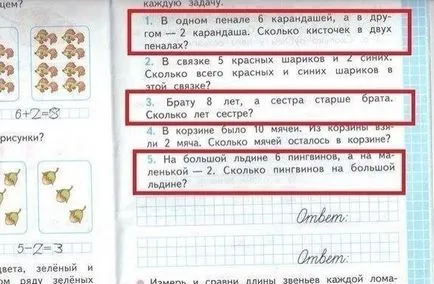 цем?
6+2=8
рисунки?
5-2=3
цвета, зелёный и
ом ряду зелёных
каждую задачу.
1. В одном пенале 6 карандашей, а в дру-
гом — 2 карандаша. Сколько кисточек в двух
пеналах?
2. В связке 5 красных шариков и 2 синих.
Сколько всего красных и синих шариков в
этой связке?
3. Брату 8 лет, а сестра старше брата.
Сколько лет сестре?
4. В корзине было 10 мячей. Из корзины взя-
ли 2 мяча. Сколько мячей осталось в корзине?
5. На большой льдине 6 пингвинов, а на ма-
ленькой — 2. Сколько пингвинов на большой
льдине?
Ответ:
Ответ:
Измерь и сравни длины звеньев каждой лома-